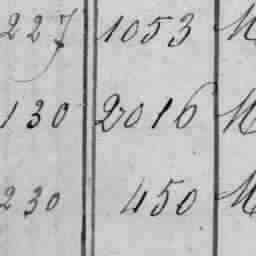 227 1053 M
130 2016 M
230 450 M